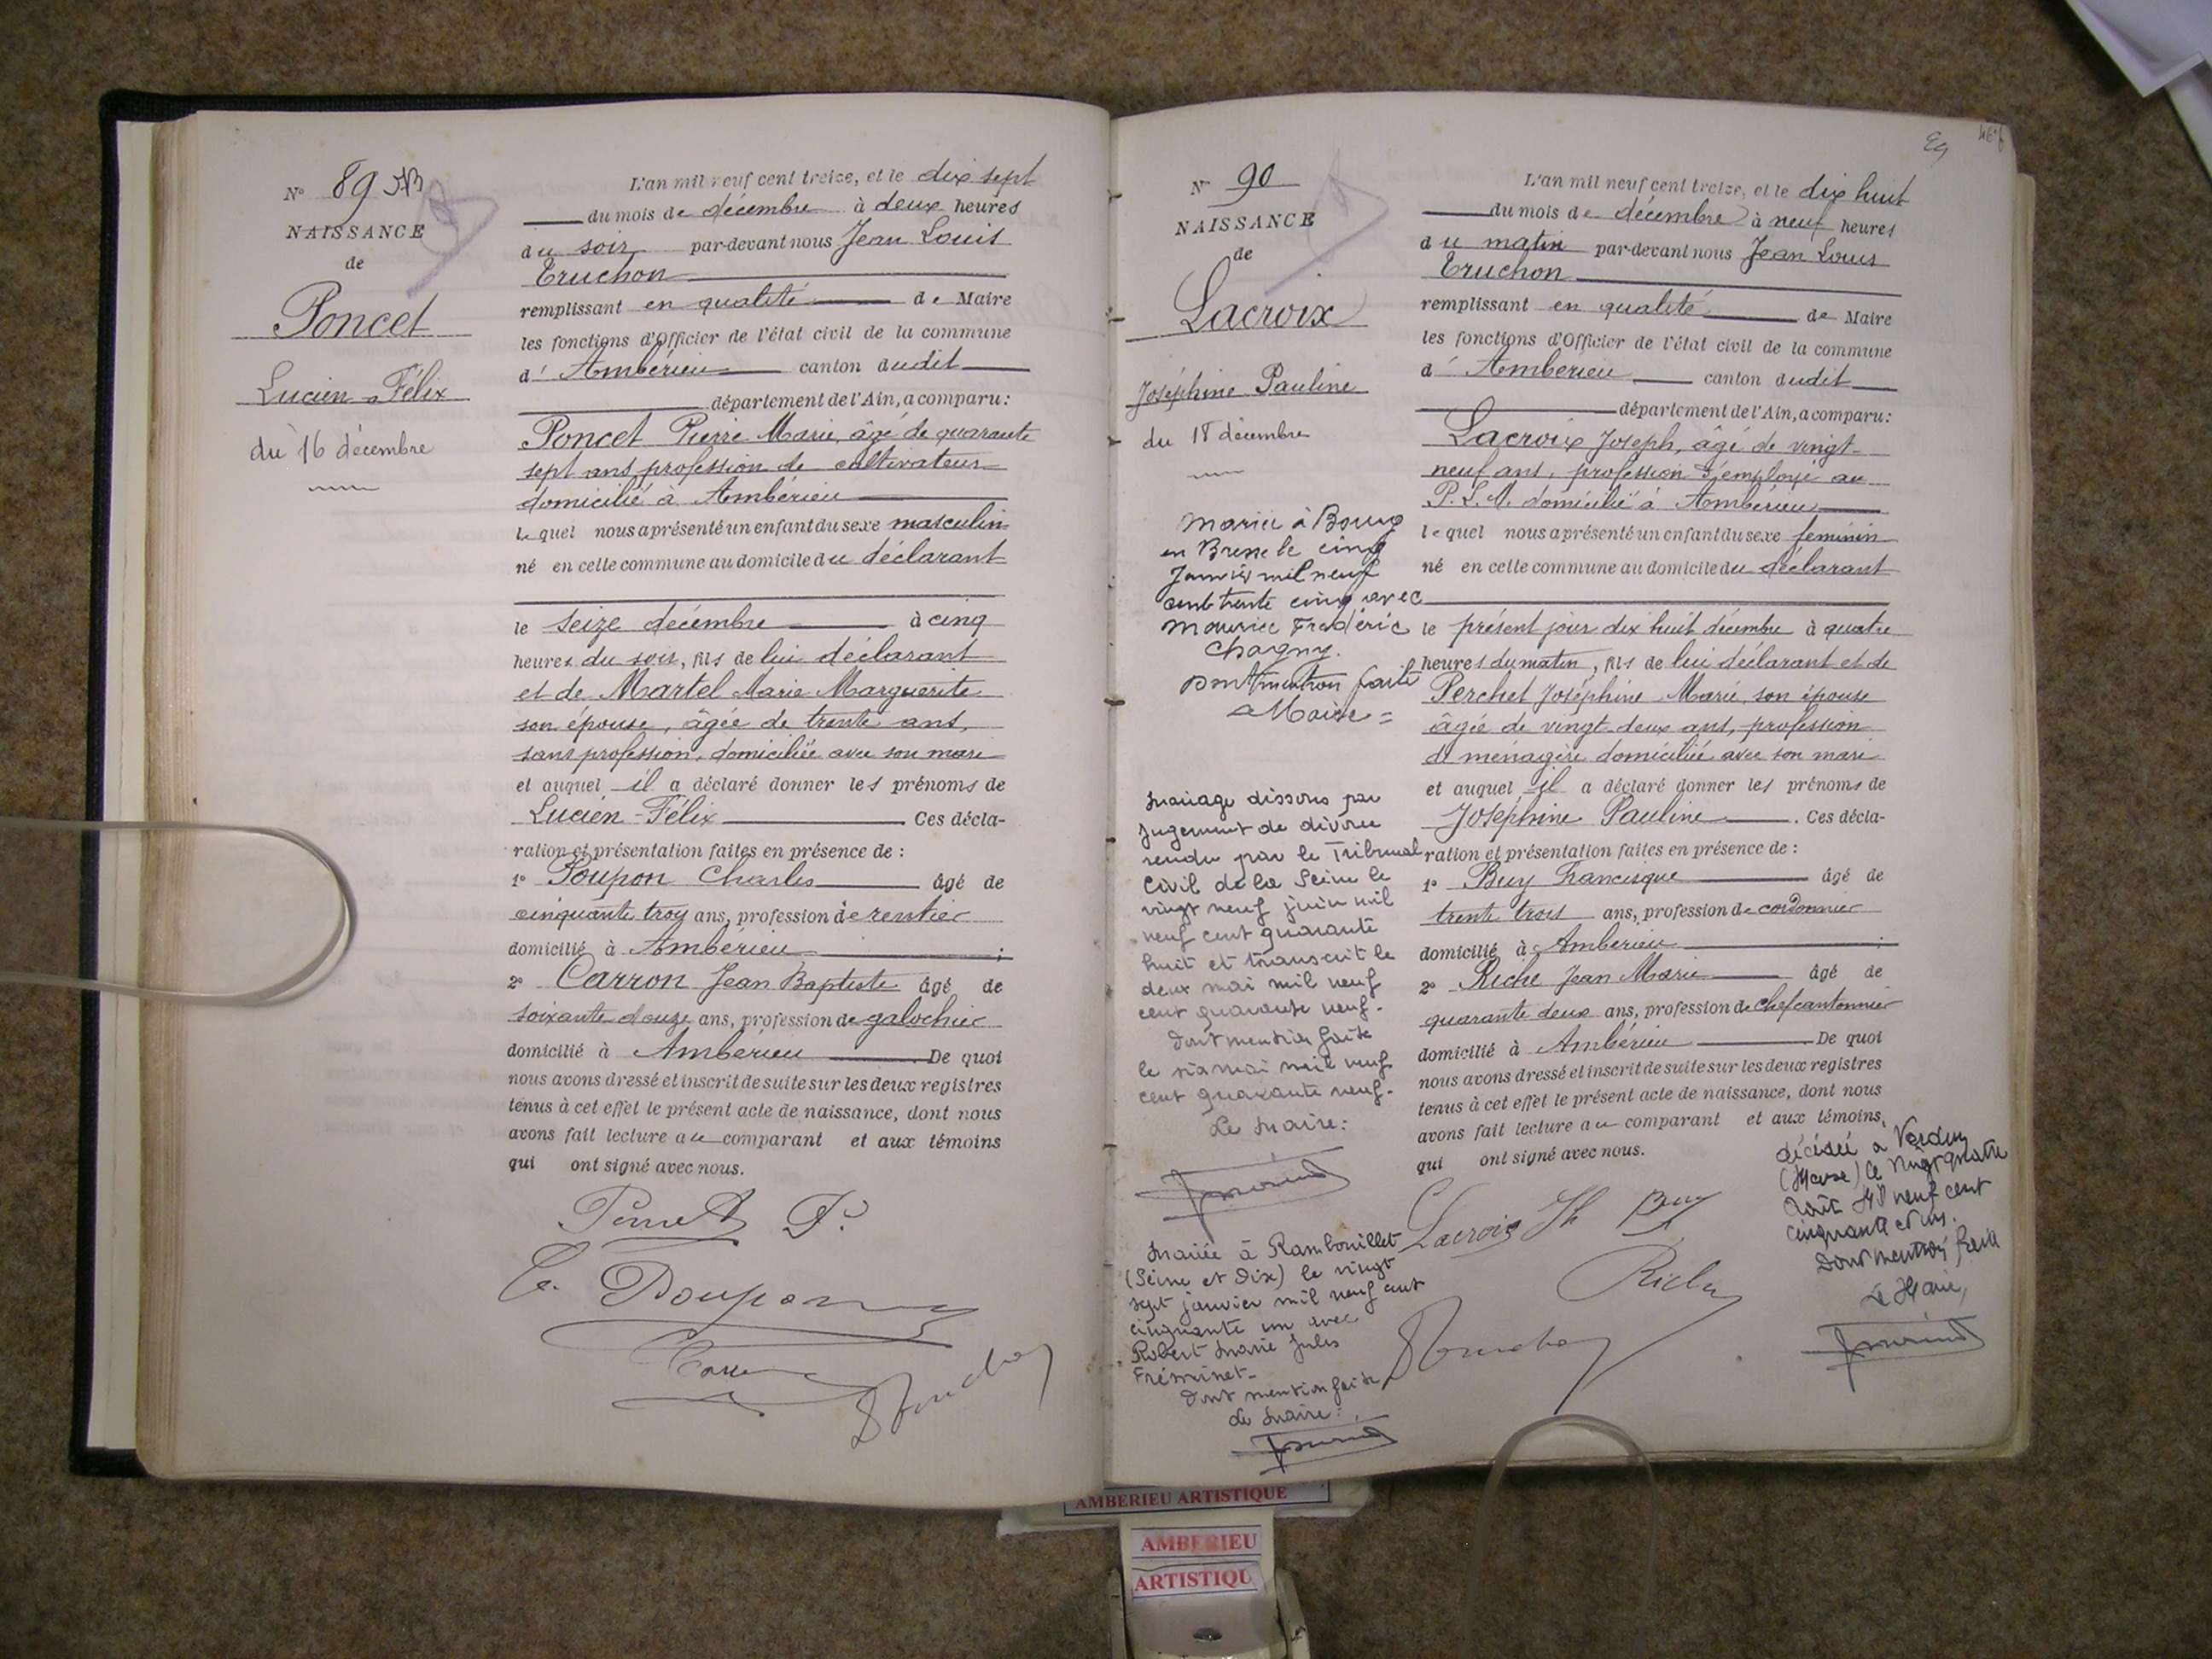 N° 89
NAISSANCE
de
Poncet
Lucien Félix
du 16 décembre
L'an mil neuf cent treize, et le dix sept
du mois de décembre à deux heures
du soir par-devant nous Jean Louis
Truchon
remplissant en qualité de Maire
les fonctions d'Officier de l'état civil de la commune
d' Ambérieu canton dudit
département de l'Ain, a comparu :
Poncet Pierre Marie, âgé de quarante
sept ans, profession de cultivateur
domicilié à Ambérieu
lequel nous a présenté un enfant du sexe masculin
né en cette commune au domicile du déclarant
le seize décembre à cinq
heures du soir, fils de lui déclarant
et de Martel Marie Marguerite
son épouse, âgée de trente ans,
sans profession, domiciliée avec son mari
et auquel il a déclaré donner les prénoms de
Lucien-Félix Ces décla-
ration et présentation faites en présence de :
1° Poupon Charles âgé de
cinquante trois ans, profession de rentier
domicilié à Ambérieu ;
2° Carron Jean Baptiste âgé de
soixante douze ans, profession de galochier
domicilié à Ambérieu De quoi
nous avons dressé et inscrit de suite sur les deux registres
tenus à cet effet le présent acte de naissance, dont nous
avons fait lecture au comparant et aux témoins
qui ont signé avec nous.
Poncet P.
C. Poupon
Carron
Truchon
N° 90
NAISSANCE
de
Lacroix
Joséphine Pauline
du 18 décembre
Mariée à Bourg
en Bresse le cinq
Janvier mil neuf
cent trente cinq avec
Maurice Frédéric
Chagny.
Dont mention faite
Le Maire =
Mariage dissous par
jugement de divorce
rendu par le Tribunal
Civil de la Seine le
vingt neuf juin mil
neuf cent quarante
huit et transcrit le
deux mai mil neuf
cent quarante neuf.
Dont mention faite
le six mai mil neuf
cent quarante neuf.
Le Maire :
Mariée à Rambouillet
(Seine et Oise) le vingt
sept janvier mil neuf cent
cinquante un avec
Robert Marie Jules
Fréminet.
Dont mention faite
Le Maire :
L'an mil neuf cent treize, et le dix huit
du mois de décembre à neuf heures
du matin par-devant nous Jean Louis
Truchon
remplissant en qualité de Maire
les fonctions d'Officier de l'état civil de la commune
d' Ambérieu canton dudit
département de l'Ain, a comparu :
Lacroix Joseph, âgé de vingt-
neuf ans, profession d'employé au
P.L.M. domicilié à Ambérieu
lequel nous a présenté un enfant du sexe féminin
né en cette commune au domicile du déclarant
le présent jour dix huit décembre à quatre
heures du matin, fils de lui déclarant et de
Perchet Joséphine Marie, son épouse
âgée de vingt deux ans, profession
de ménagère domiciliée avec son mari
et auquel il a déclaré donner les prénoms de
Joséphine Pauline . Ces décla-
ration et présentation faites en présence de :
1° Buy Francisque âgé de
trente trois ans, profession de cordonnier
domicilié à Ambérieu ;
2° Riche Jean Marie âgé de
quarante deux ans, profession de chef cantonnier
domicilié à Ambérieu De quoi
nous avons dressé et inscrit de suite sur les deux registres
tenus à cet effet le présent acte de naissance, dont nous
avons fait lecture au comparant et aux témoins,
qui ont signé avec nous.
Lacroix Jh Buy
Riche
Truchon
décédée à Verdun
(Meuse) le vingt quatre
Août Mil neuf cent
cinquante et un.
Dont mention faite
Le Maire,
AMBERIEU ARTISTIQUE
AMBERIEU
ARTISTIQU